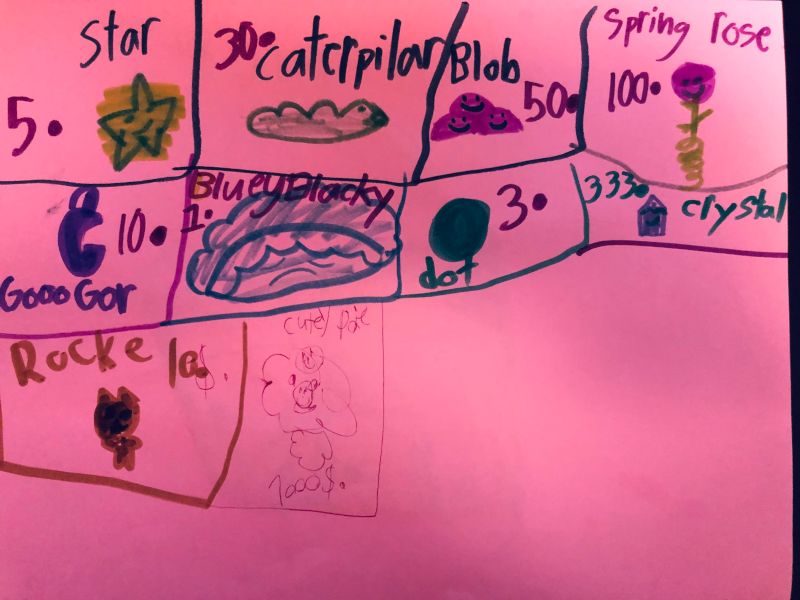 star
5.
30.
caterpilar
Blob
50.
Spring rose
100.
GoooGor
10.
BlueyBlacky
1.
dot
3.
333.
crystal
Rocke
10$.
1000$.